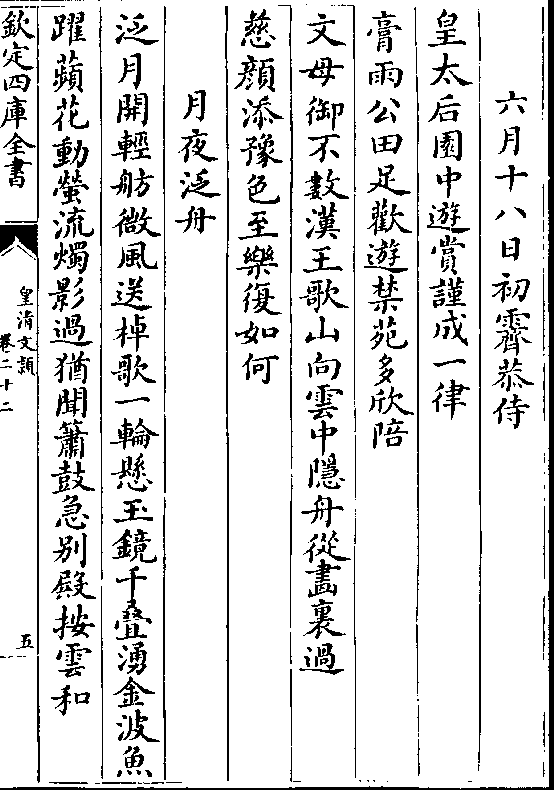 六月十八日初霽恭侍
皇太后園中遊賞謹成一律
膏雨公田足歡遊禁苑多欣陪
文母御不數漢王歌山向雲中隱舟從畫裏過
慈顔添豫色至樂復如何
月夜泛舟
泛月開輕舫微風送棹歌一輪懸玉鏡千疊湧金波魚
躍蘋花動螢流燭影過猶聞簫鼓急别殿按雲和
欽定四庫全書
皇清文頴
卷二十二
五